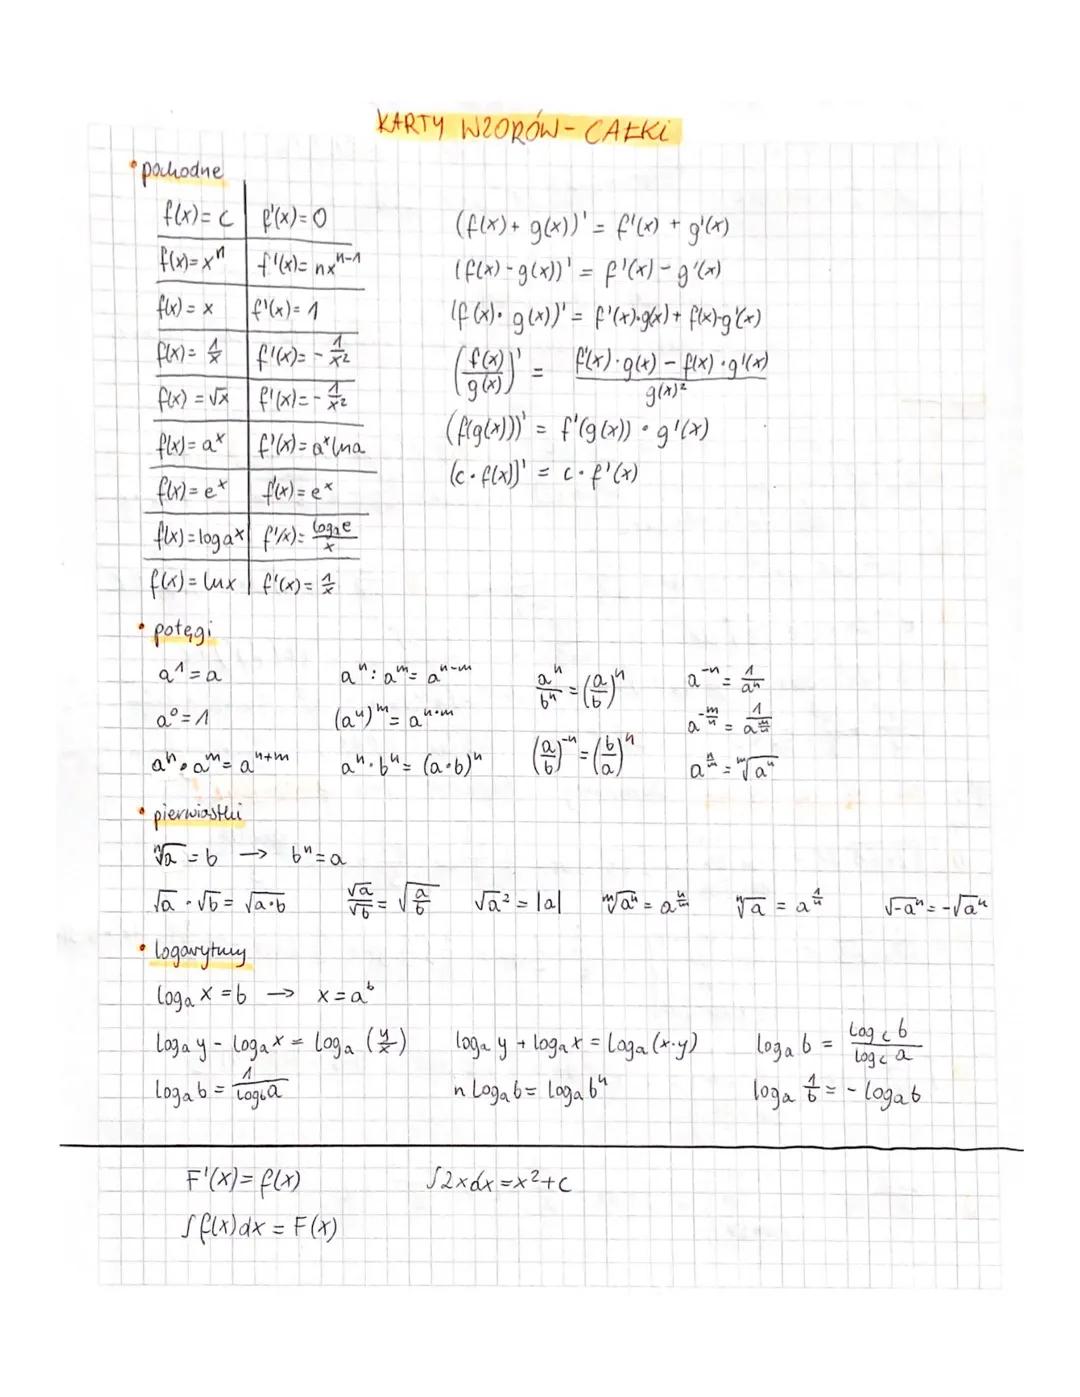 KARTY WZORÓW - CAŁKI
• pochodne
f(x) = c | f'(x) = 0
f(x) = xⁿ | f'(x) = nxⁿ⁻¹
f(x) = x | f'(x) = 1
f(x) = 1/x | f'(x) = - 1/x²
f(x) = √x | f'(x) = - 1/x²
f(x) = aˣ | f'(x) = aˣ lna
f(x) = eˣ | f'(x) = eˣ
f(x) = logₐx | f'(x) = logₐe/x
f(x) = lnx | f'(x) = 1/x
(f(x) + g(x))' = f'(x) + g'(x)
(f(x) - g(x))' = f'(x) - g'(x)
(f(x) · g(x))' = f'(x)·g(x) + f(x)·g'(x)
(f(x)/g(x))' = (f'(x)·g(x) - f(x)·g'(x))/g(x)²
(f(g(x)))' = f'(g(x)) · g'(x)
(c · f(x))' = c · f'(x)
• potęgi
a¹ = a aⁿ : aᵐ = aⁿ⁻ᵐ aⁿ/bⁿ = (a/b)ⁿ a⁻ⁿ = 1/aⁿ
a⁰ = 1 (aⁿ)ᵐ = aⁿ·ᵐ (a/b)⁻ⁿ = (b/a)ⁿ a^(-m/n) = 1/a^(m/n)
aⁿ · aᵐ = aⁿ⁺ᵐ aⁿ · bⁿ = (a·b)ⁿ a^(n/m) = ᵐ√aⁿ
• pierwiastki
ⁿ√a = b → bⁿ = a
√a · √b = √a·b √a/√b = √(a/b) √a² = |a| ᵐ√aⁿ = a^(n/m) ⁿ√a = a^(1/n) √-aⁿ = -√aⁿ
• logarytmy
logₐ x = b → x = aᵇ
logₐ y - logₐ x = logₐ (y/x) logₐ y + logₐ x = logₐ (x·y) logₐ b = log_c b/log_c a
logₐ b = 1/log_b a n logₐ b = logₐ bⁿ logₐ 1/b = - logₐ b
F'(x) = f(x) ∫2xdx = x² + c
∫f(x)dx = F(x)